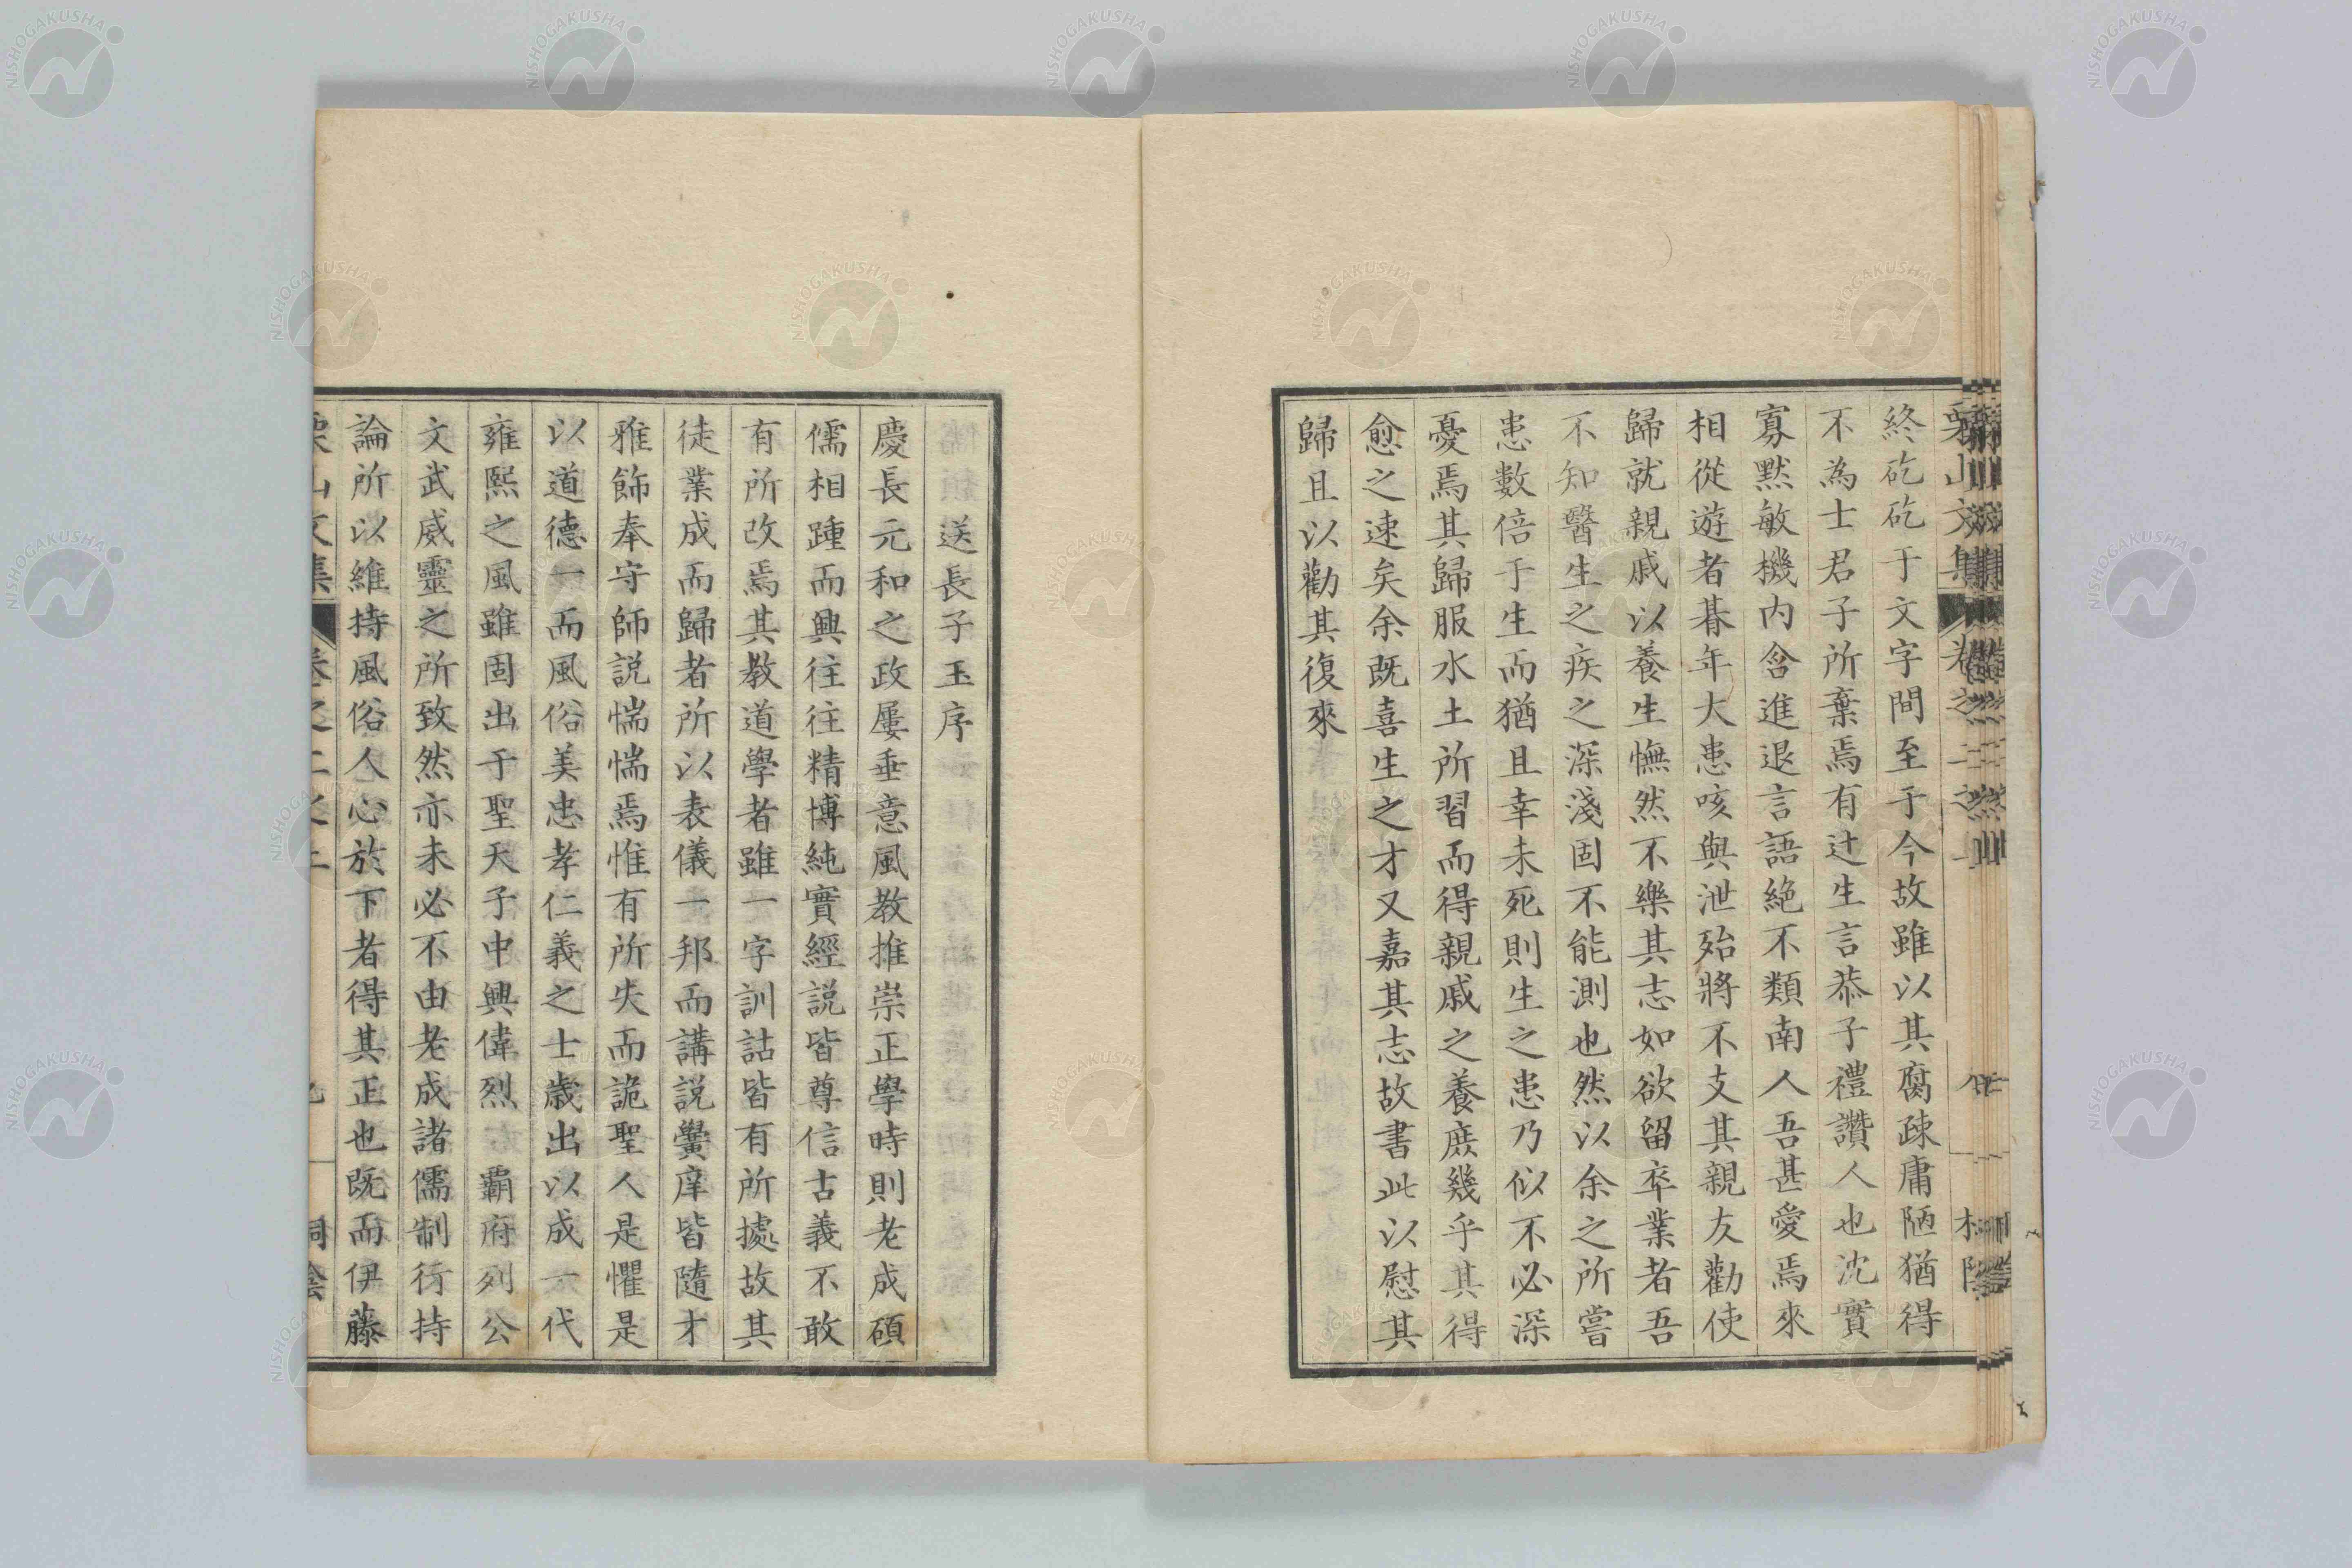 終矻矻于文字間至于今故雖以其腐疎庸陋猶得
不為士君子所棄焉有辻生言恭子禮讚人也沈實
寡默敏機内含進退言語絶不類南人吾甚愛焉來
相從遊者朞年大患咳與泄殆將不支其親友勸使
歸就親戚以養生憮然不樂其志如欲留卒業者吾
不知醫生之疾之深淺固不能測也然以余之所嘗
患數倍于生而猶且幸未死則生之患乃似不必深
憂焉其歸服水土所習而得親戚之養庶幾乎其得
愈之速矣余既喜生之才又嘉其志故書此以慰其
歸且以勸其復來
送長子玉序
慶長元和之政屢垂意風教推崇正學時則老成碩
儒相踵而興往往精博純實經説皆尊信古義不敢
有所改焉其教道學者雖一字訓詁皆有所據故其
徒業成而歸者所以表儀一邦而講説黌庠皆隨才
雅飾奉守師説惴惴焉惟有所失而詭聖人是懼是
以道德一而風俗美忠孝仁義之士歳出以成一代
雍熙之風雖固出于聖天子中興偉烈 覇府列公
文武威靈之所致然亦未必不由老成諸儒制行持
論所以維持風俗人心於下者得其正也既而伊藤
栗山文集 卷之二之上
NISHOGAKUSHA